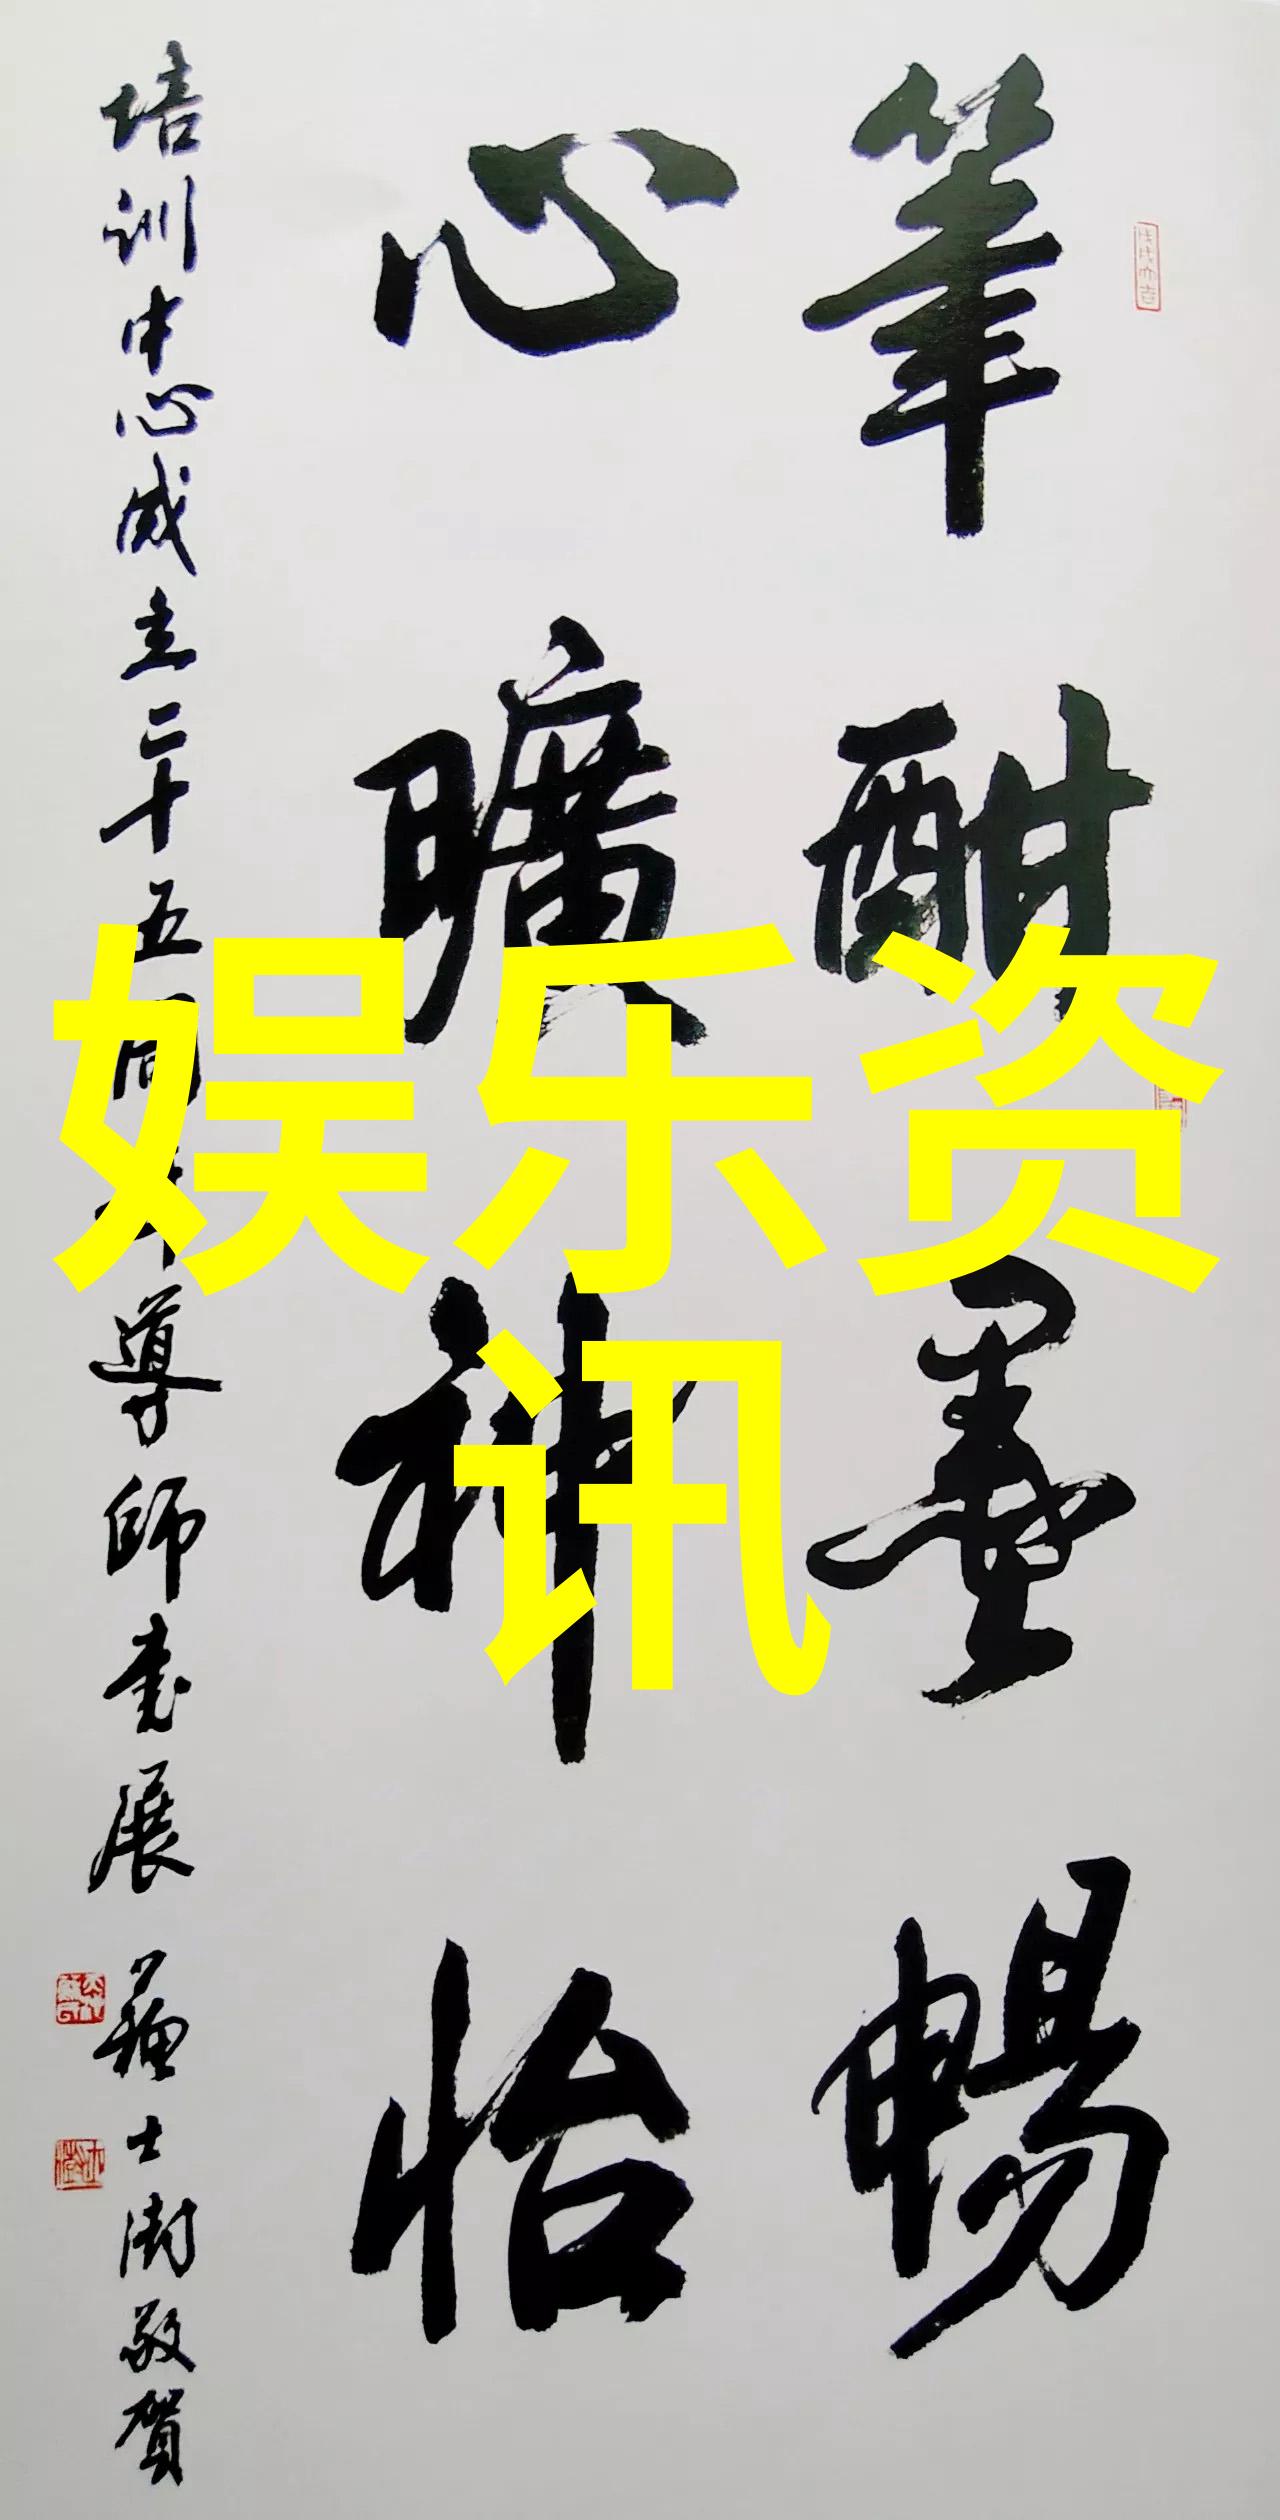 筆酣墨暢
心曠神怡
培训中心成立二十五周年導師書展
士澍敬賀
娱乐资
讯